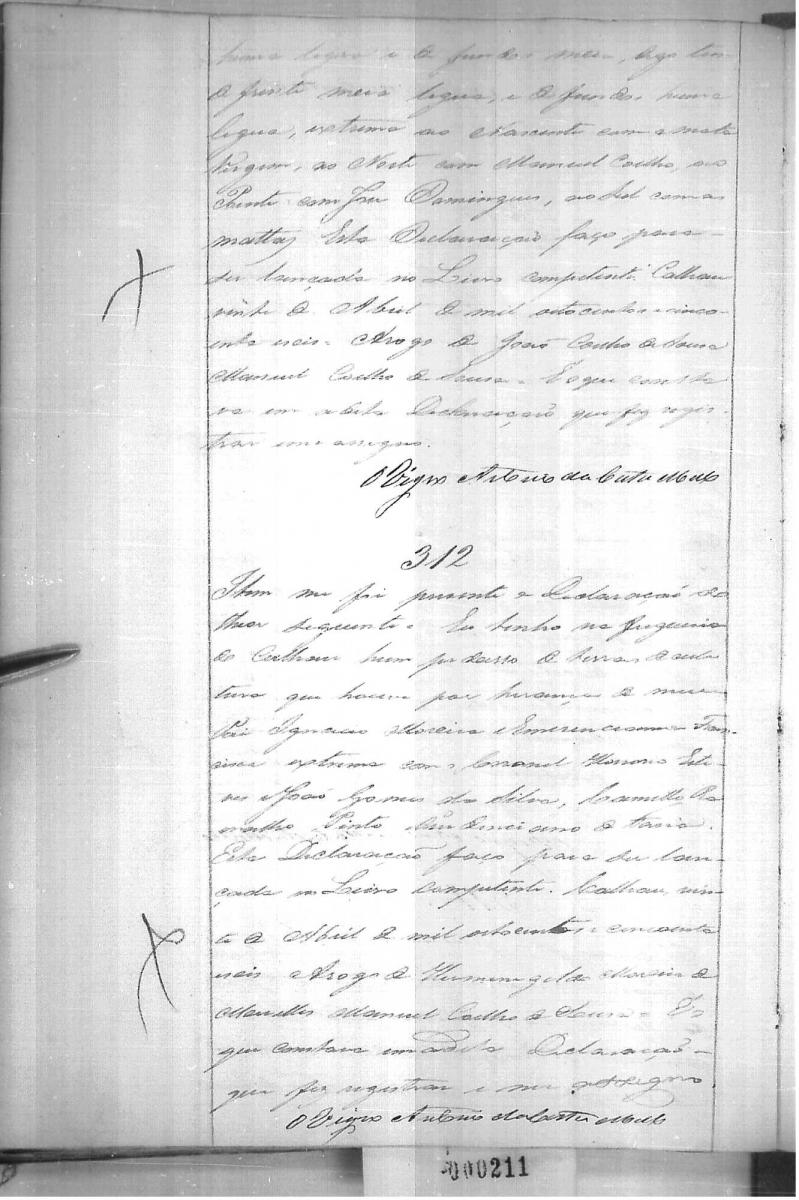 huma legoa e de fundos meia, digo tem
de frente meia legoa, e de fundos huma
legoa, extrema ao Nascente com a mata
virgem, ao Norte com Manuel Coelho, ao
Poente com José Domingues, ao Sul com as
mattas Esta Declaração faço para
ser lançada no Livro competente. Calhau
vinte de Abril de mil oitocentos e cinco-
enta e seis. Arogo de João Coelho de Sousa
Manuel Coelho de Sousa. E o que consta
va em a dita Declaração que fiz regis-
trar e me assigno.
O Vigrº Antonio da Costa Mello
312
Item me foi presente a Declaração do
theor seguinte. Eu tenho na freguesia
do Calhau hum pedasso de terras de cul
tura que houve por herança de meu
Pai Ignacio Moreira e Emerenciana Fran-
cisca extrema com o Coronel Honorio Este-
ves e João Gomes da Silva, Camillo Ra
malho Pinto de Faria.
Esta Declaração faço para ser lan-
çada no Livro competente. Calhau, vin-
te de Abril de mil oitocentos e cincoenta
e seis Arogo de Hermenegildo Moreira de
Manuel Coelho de Sousa. E o
que constava em a dita Declaração
que fiz registrar e me assigno
O Vigrº Antonio da Costa Mello
000211